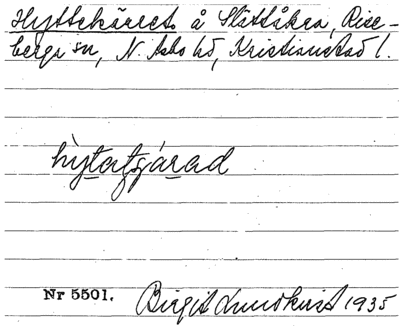 Hyttekärret å Slättåkra, Rise-
berga sn, N. Åsbo hd, Kristianstad l.
Nr 5501. Birgit Lundkvist 1935